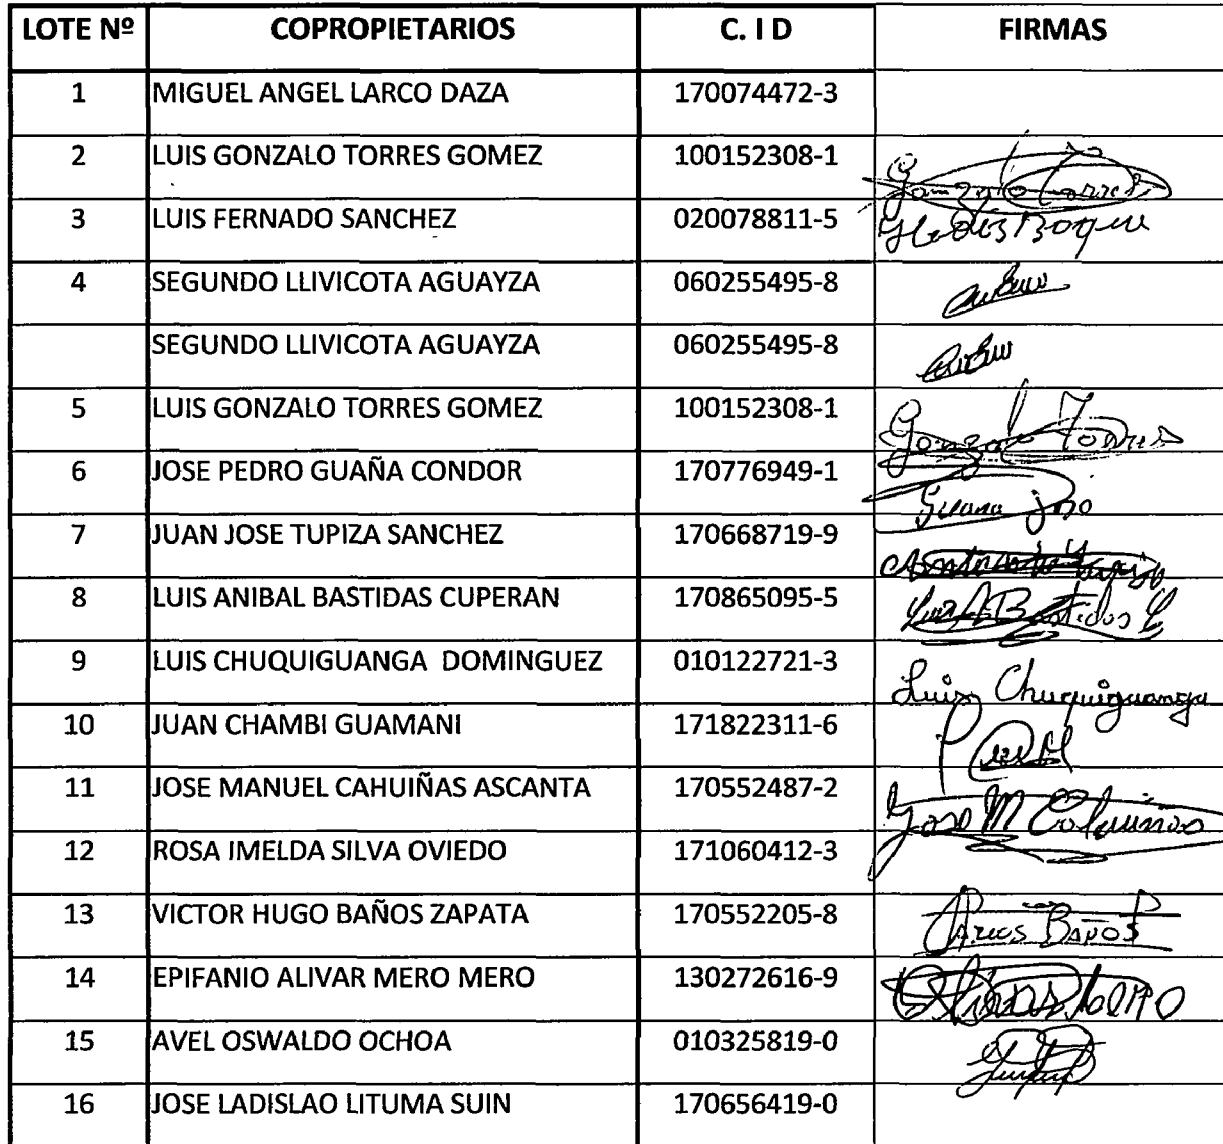 LOTE Nº COPROPIETARIOS C. I D FIRMAS
1 MIGUEL ANGEL LARCO DAZA 170074472-3
2 LUIS GONZALO TORRES GOMEZ 100152308-1 Gonzalo Torres
3 LUIS FERNADO SANCHEZ 020078811-5
4 SEGUNDO LLIVICOTA AGUAYZA 060255495-8
SEGUNDO LLIVICOTA AGUAYZA 060255495-8
5 LUIS GONZALO TORRES GOMEZ 100152308-1 Gonzalo Torres
6 JOSE PEDRO GUAÑA CONDOR 170776949-1
7 JUAN JOSE TUPIZA SANCHEZ 170668719-9
8 LUIS ANIBAL BASTIDAS CUPERAN 170865095-5 Luis A Bastidas C
9 LUIS CHUQUIGUANGA DOMINGUEZ 010122721-3 Luis Chuquiguanga
10 JUAN CHAMBI GUAMANI 171822311-6
11 JOSE MANUEL CAHUIÑAS ASCANTA 170552487-2 Jose M
12 ROSA IMELDA SILVA OVIEDO 171060412-3
13 VICTOR HUGO BAÑOS ZAPATA 170552205-8 Baños
14 EPIFANIO ALIVAR MERO MERO 130272616-9
15 AVEL OSWALDO OCHOA 010325819-0
16 JOSE LADISLAO LITUMA SUIN 170656419-0